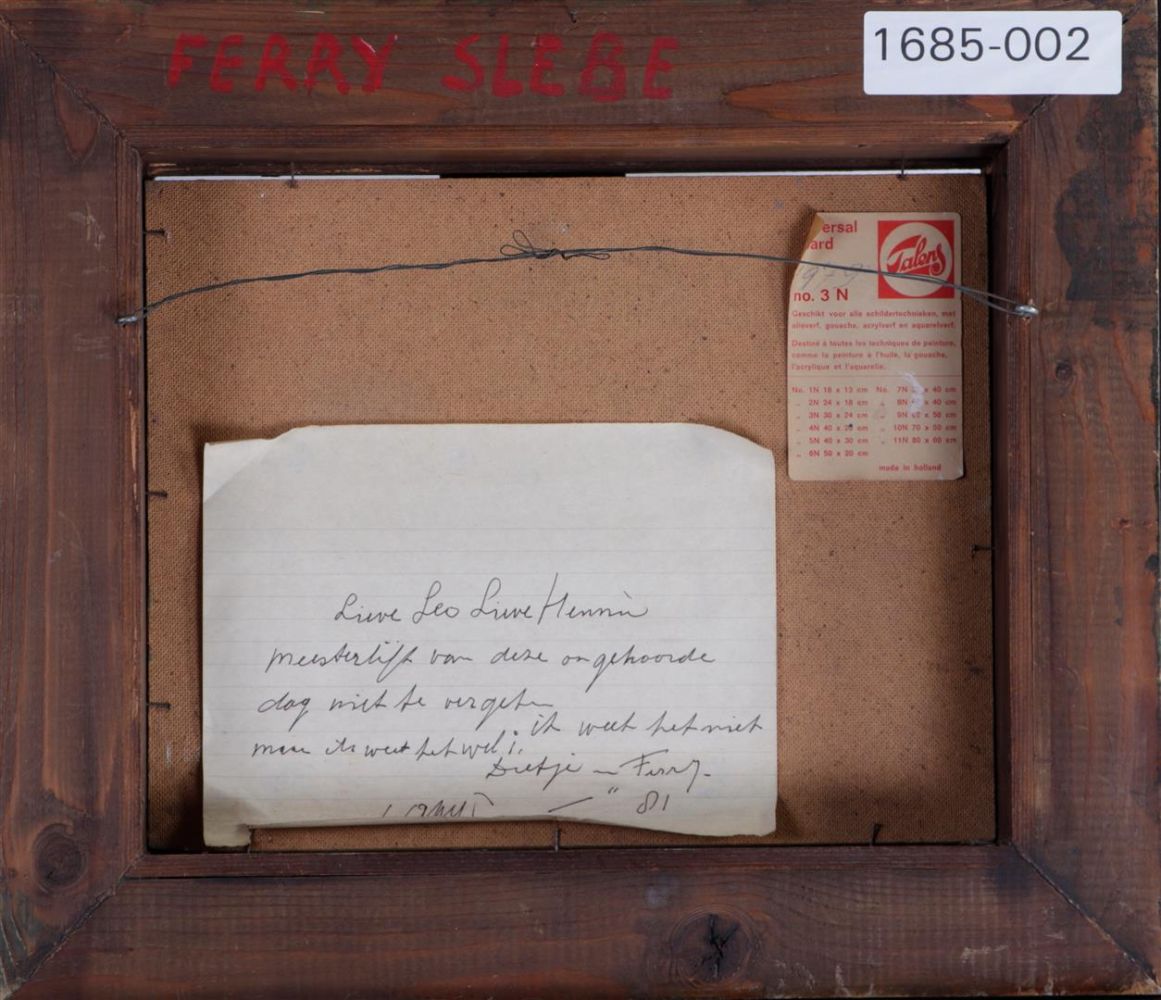 FERRY SLEBE
1685-002
ersal
ard
Talens
1979
no. 3 N
Geschikt voor alle schildertechnieken, met
olieverf, gouache, acrylverf en aquarelverf.
Destiné à toutes les techniques de peinture,
comme la peinture à l'huile, la gouache,
l'acrylique et l'aquarelle.
No. 1N 18 x 13 cm No. 7N x 40 cm
" 2N 24 x 18 cm " 8N x 40 cm
" 3N 30 x 24 cm " 9N x 50 cm
" 4N 40 x cm " 10N 70 x 50 cm
" 5N 40 x 30 cm " 11N 80 x 60 cm
" 6N 50 x 20 cm
made in holland
Lieve Leo Lieve Hennie
meesterlijk van deze ongehoorde
dag niet te vergeten
ik weet het niet
maar weet het wel
Dietje en Ferry
81